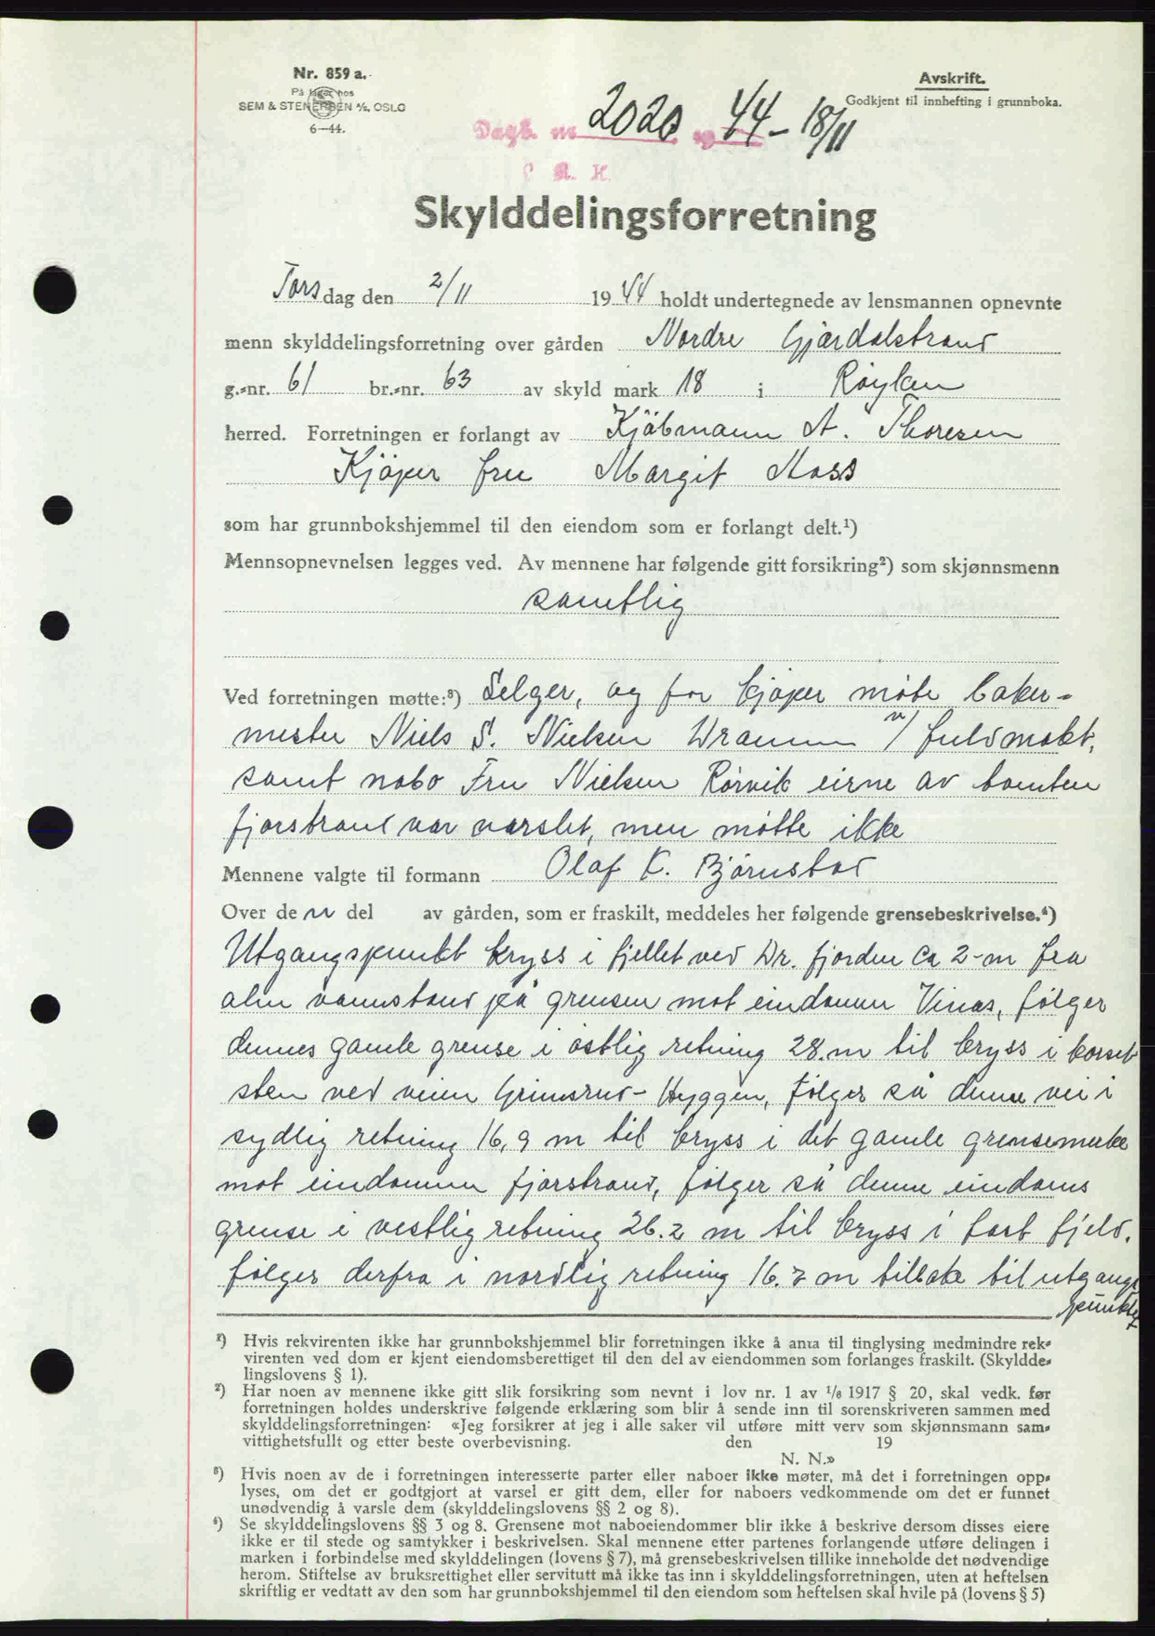 Nr. 859 a.
På lager hos
SEM & STENERSEN A/S, OSLO
6—44.
Avskrift.
Godkjent til innhefting i grunnboka.
Dagb. nr. 2020 19 44 - 18/11
S. R. H.
Skylddelingsforretning
Torsdag den 2/11 1944 holdt undertegnede av lensmannen opnevnte
menn skylddelingsforretning over gården Nordre Gjærdalstrand
g.-nr. 61 br.-nr. 63 av skyld mark 18 i Røyken
herred. Forretningen er forlangt av Kjøbmann A. Thoresen
Kjøper fru Margit Moss
som har grunnbokshjemmel til den eiendom som er forlangt delt.¹)
Mennsopnevnelsen legges ved. Av mennene har følgende gitt forsikring²) som skjønnsmenn
samtlig
Ved forretningen møtte:³) Selger, og for kjøper møte baker-
mester Niels S. Nielsen Drammen m/ fuldmakt,
samt nabo Fru Nielsen Rørvik eirne av tomten
fjorstrand var varslet, men møtte ikke
Mennene valgte til formann Olaf K. Bjørnstad
Over den del av gården, som er fraskilt, meddeles her følgende grensebeskrivelse.⁴)
Utgangspunkt kryss i fjellet ved Dr. fjorden ca 2-m fra
alm vannstand på grensen mot eindommen Vinas, følger
dennes gamle grense i østlig retning 28.m til kryss i
sten ved veien Grimsrud - Hyggen, følger så denne vei i
sydlig retning 16,9 m til kryss i det gamle grensemerke
mot eindommen fjorstrand, følger så denne eindoms
grense i vestlig retning 26.2 m til kryss i fast fjeld.
følger derfra i nordlig retning 16.2 m tilbake til utgangs
punktet
¹) Hvis rekvirenten ikke har grunnbokshjemmel blir forretningen ikke å anta til tinglysing medmindre rek-
virenten ved dom er kjent eiendomsberettiget til den del av eiendommen som forlanges fraskilt. (Skyldde-
lingslovens § 1).
²) Har noen av mennene ikke gitt slik forsikring som nevnt i lov nr. 1 av ¹/₆ 1917 § 20, skal vedk. før
forretningen holdes underskrive følgende erklæring som blir å sende inn til sorenskriveren sammen med
skylddelingsforretningen: «Jeg forsikrer at jeg i alle saker vil utføre mitt verv som skjønnsmann sam-
vittighetsfullt og etter beste overbevisning. den 19
N. N.»
³) Hvis noen av de i forretningen interesserte parter eller naboer ikke møter, må det i forretningen opp-
lyses, om det er godtgjort at varsel er gitt dem, eller for naboers vedkommende om det er funnet
unødvendig å varsle dem (skylddelingslovens §§ 2 og 8).
⁴) Se skylddelingslovens §§ 3 og 8. Grensene mot naboeiendommer blir ikke å beskrive dersom disses eiere
ikke er til stede og samtykker i beskrivelsen. Skal mennene etter partenes forlangende utføre delingen i
marken i forbindelse med skylddelingen (lovens § 7), må grensebeskrivelsen tillike inneholde det nødvendige
herom. Stiftelse av bruksrettighet eller servitutt må ikke tas inn i skylddelingsforretningen, uten at heftelsen
skriftlig er vedtatt av den som har grunnbokshjemmel til den eiendom som heftelsen skal hvile på (lovens § 5)